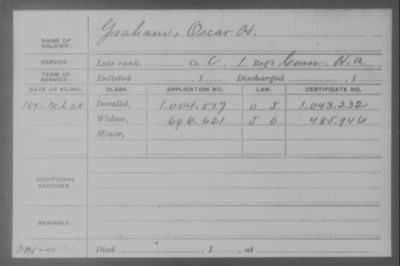 NAME OF SOLDIER: Graham, Oscar H.
SERVICE: Late rank, Co. C, 1 Reg't Conn. H. A.
TERM OF SERVICE: Enlisted , 1 Discharged , 1
DATE OF FILING. CLASS. APPLICATION NO. LAW. CERTIFICATE NO.
Invalid, 1.004.517 1.043.232
Widow, 696.621 485.946
Minor,
ADDITIONAL SERVICES:
REMARKS:
Died , 1 , at